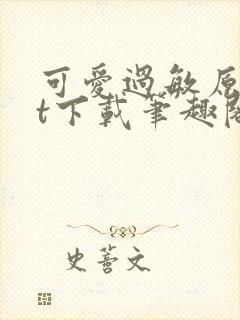 可愛過敏原
t下載筆趣閣
史蘦文